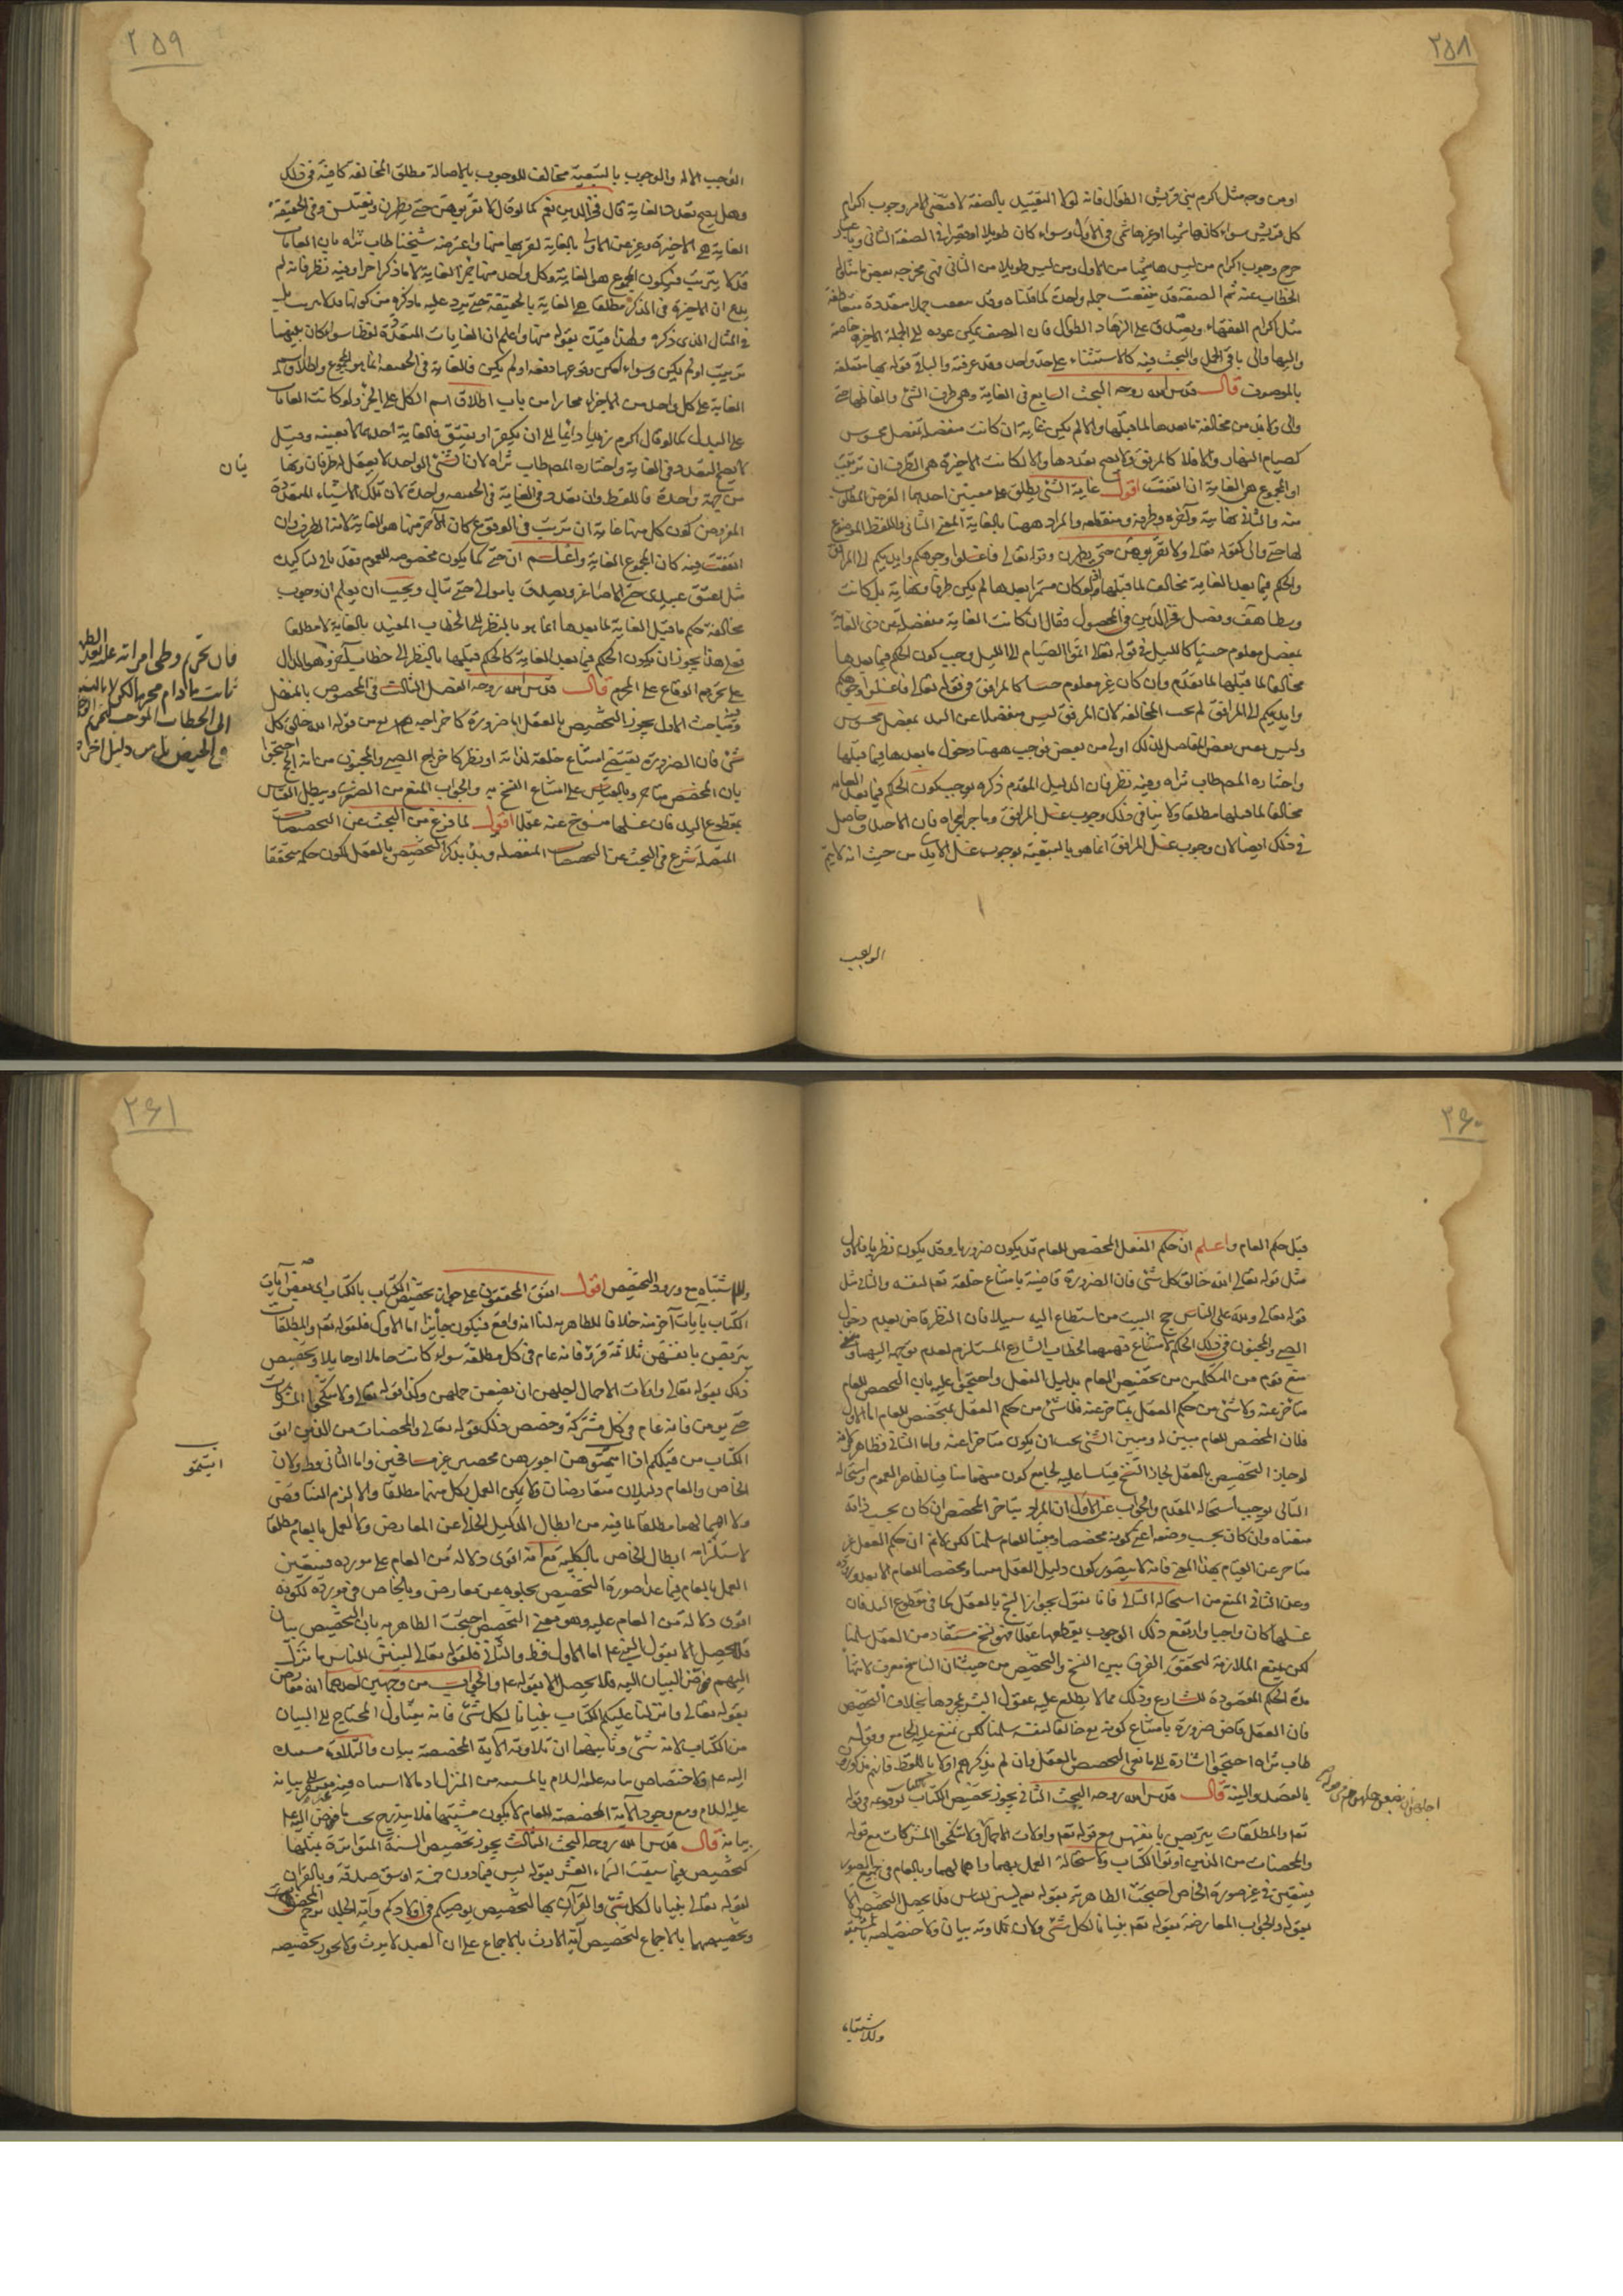 ٢٥٨
او من وجه مثل اكرم بنى قريش الطوال فانه لولا التقييد بالصفة لاقتضى الامر وجوب اكرام
كل قريشى سواء كان هاشميا او غير هاشمى فى الاول وسواء كان طويلا او قصيرا فى الصفة الثانى
خرج وجوب اكرام من ليس هاشميا من الاول ومن ليس طويلا من الثانى فهى مخرجة بعض ما تناوله
الخطاب عنه ثم الصفة قد تتعقب جملة واحدة كما قلناه وقد تتعقب جملا متعددة متعاطفة
مثل اكرام الفقهاء وتصدق على الزهاد الطوال فان الوصف يمكن عوده الى الجملة الاخيرة خاصة
واليها والى باقى الجمل والبحث فيه كالاستثناء على حد واحد وقد عرفته والباقى قوله بها متعلقة
بالموصوف قال قدس الله روحه البحث السابع فى الغاية وهى طرف الشئ والفاظها حتى
والى ولا بد من مخالفة ما بعدها لما قبلها والا لم يكن غاية ان كانت منفصلة بمفصل محسوس
كصيام النهار والا فلا كالمرفق ولا يصح تعددها والا لكانت الاخيرة هى الطرف ان ترتبت
او المجموع هى الغاية ان اتفقت اقول غاية الشئ يطلق على معنيين احدهما الغرض المطلوب
منه والثانى نهايته وآخره وطرفه ومنقطعه والمراد ههنا بالغاية المعنى الثانى واللفظ الموضوع
لها حتى والى كقوله تعالى ولا تقربوهن حتى يطهرن وقوله تعالى فاغسلوا وجوهكم وايديكم الى المرافق
والحكم فيما بعد الغاية مخالف لما قبلها اذ لو كان مستمرا بعدها لم يكن طرفا ونهاية بل كانت
وسطا هف وفصل فخر الدين فى المحصول فقال ان كانت الغاية منفصلة عن ذى الغاية
بمفصل معلوم حسا كالليل فى قوله تعالى اتموا الصيام الى الليل وجب كون الحكم فيما بعدها
مخالفا لما قبلها لما تقدم وان كان غير معلوم حسا كالمرافق فى قوله تعالى فاغسلوا وجوهكم
وايديكم الى المرافق لم يجب المخالفة لان المرفق ليس منفصلا عن اليد بمفصل محسوس
وليس بعض المفاصل لذلك اولى من بعض فوجب ههنا دخول ما بعدها فيما قبلها
واختاره المصنف طاب ثراه وفيه نظر فان الدليل المقدم ذكره يوجب كون الحكم فيما بعد الغاية
مخالفا لما قبلها مطلقا ولا ينافى ذلك وجوب غسل المرافق وما جرى مجراه فان الاصل حاصل
فى ذلك ايضا لان وجوب غسل المرافق انما هو بالتبعية لوجوب غسل الايدى من حيث انه لا يتم
الواجب
٢٥٩
الواجب الا به والوجوب بالتبعية مخالف للوجوب بالاصالة مطلق المخالفة كافية فى ذلك
وهل يصح تعدد الغاية قال فخر الدين نعم كما لو قال لا تقربوهن حتى يطهرن ويغتسلن وفى الحقيقة
الغاية هى الاخيرة وعبر عن الاولى بالغاية لقربها منها واعترضه شيخنا طاب ثراه بان الغايات
قد لا يترتب فيكون المجموع هو الغاية وكل واحد منهما جزء الغاية لا ما ذكر اخيرا وفيه نظر فانه لم
يدع ان الاخيرة فى الذكر مطلقا هى الغاية بالحقيقة حتى يرد عليه ما ذكره من كونها قد لا يترتب بل
فى المثال الذى ذكره ولهذا قيد بقوله منها واعلم ان الغايات المتعددة لفظا سواء كان بينهما
ترتيب او لم يكن وسواء امكن وقوعها دفعة او لم يكن فالغاية فى الحقيقة انما هو المجموع واطلاق اسم
الغاية على كل واحد من الاجزاء مجازا من باب اطلاق اسم الكل على الجزء ولو كانت الغايات
على البدل كما لو قال اكرم زيدا دائما الى ان يكفر او يفسق فالغاية احدهما لا بعينه وقيل
لا يصح التعدد فى الغاية واختاره المصنف طاب ثراه لان الشئ الواحد لا يعقل له طرفان ونهايتان
من جهة واحدة فاللفظ وان تعدد فالغاية فى الحقيقة واحدة لان تلك الاشياء المتعددة
المفروض كون كل منها غاية ان ترتب فى الوقوع كان الآخر منها هو الغاية لانه الطرف وان
اتفقت فيه كان المجموع الغاية واعلم ان حتى كما يكون مخصوصة للعموم فقد يأتى لتأكيده
مثل عتق عبيدى حتى الاصاغر وتصدق باموالى حتى ثيابى ويجب ان يعلم ان وجوب
مخالفة حكم ما قبل الغاية لما بعدها انما هو بالنظر الى الخطاب المقيد بالغاية لا مطلقا
فعلى هذا يجوز ان يكون الحكم فيما بعد الغاية كالحكم قبلها بالنظر الى خطاب آخر وهو الدال
على تحريم الوقاع على المحرم قال قدس الله روحه الفصل الثالث فى المخصص بالمنفصل
وفيه مباحث الاول يجوز التخصيص بالعقل اما ضرورة كاخراجه تعالى من قوله الله خالق كل
شئ فان الضرورة يقتضى امتناع خلقه لذاته او نظرا كاخراج الصبى والمجنون من آية الحج احتجوا
بان المخصص متاخر وبالقياس على امتناع النسخ به والجواب المنع من الصغرى ويبطل القياس
بمقطوع اليد فان غسلها منسوخ عنه عقلا اقول لما فرغ من البحث عن المخصصات
المتصلة شرع فى البحث عن المخصصات المنفصلة وبدء بذكر التخصيص بالعقل لكون حكمه متحققا
يتان
فان تحريم وطى امراته عليه بعد الطهر
ثابت ما دام محرما لكن لا بالنسبة
الى الخطاب الموجب لتحريم الوطى
فى الحيض بل من دليل آخر
٢۶٠
قبل حكم العام واعلم ان حكم العقل المخصص للعام قد يكون ضروريا وقد يكون نظريا فالاول
مثل قوله تعالى الله خالق كل شئ فان الضرورة قاضية بامتناع خلقه تعالى لنفسه والثانى مثل
قوله تعالى ولله على الناس حج البيت من استطاع اليه سبيلا فان النظر قاض بعدم دخول
الصبى والمجنون فى ذلك الحكم لامتناع فهمهما لخطاب الشارع المستلزم لعدم توجهه اليهما ومنع
منع قوم من المتكلمين من تخصيص العام بدليل العقل واحتجوا عليه بان المخصص للعام
متاخر عنه ولا شئ من حكم العقل بمتاخر عنه فلا شئ من حكم العقل بمخصص للعام اما الاول
فلان المخصص للعام مبين له ومبين الشئ يجب ان يكون متاخرا عنه واما الثانى فظاهر ولانه
لو جاز التخصيص بالعقل لجاز النسخ قياسا عليه لجامع كون منهما منافيا لظاهر العموم واستحالة
التالى يوجب استحالة المقدم والجواب عن الاول ان المراد بتاخر المخصص ان كان بحسب ذاته
منعناه وان كان بحسب وصفه اعنى كونه مخصصا ومبينا للعام سلمنا لكن لا نم ان حكم العقل غير
متاخر عن القيام بهذا المعنى فانه لا يتصور كون دليل العقل مبينا ومخصصا للعام الا بعد وروده
وعن الثانى المنع من استحالة التالى فانا نقول بجواز النسخ بالعقل كما فى مقطوع اليد فان
غسلها كان واجبا وارتفع ذلك الوجوب بقطعها عقلا فهو نسخ مستفاد من العقل سلمنا
لكن نمنع الملازمة لتحقق الفرق بين النسخ والتخصيص من حيث ان الناسخ معرف لانتهاء
مدة الحكم المقصودة للشارع وذلك مما لا يطلع عليه عقول البشر بمجردها بخلاف التخصيص
فان العقل قاض ضرورة بامتناع كونه تعالى خالقا لنفسه سلمنا لكن نمنع علية الجامع وقوله
طاب ثراه احتجوا اشارة الى مانعى التخصيص بالعقل وان لم يذكرهم اولا باللفظ فانهم مذكورون
بالقصد والنية قال قدس الله روحه البحث الثانى يجوز تخصيص الكتاب بالكتاب لوقوعه فى قوله
تعالى والمطلقات يتربصن بانفسهن مع قوله تعالى واولات الاحمال ولا تنكحوا المشركات مع قوله
والمحصنات من الذين اوتوا الكتاب ولاستحالة العمل بهما واهمالهما وبالعام فى جميع الصور
فيتعين فى غير صورة الخاص احتجت الظاهرية بقوله تعالى لتبين للناس فلا يحصل التخصيص الا
بقوله والجواب المعارضة بقوله تعالى تبيانا لكل شئ ولان تلاوته بيان ولاختصاصه بالمشتبه
وللاشتباه
٢۶١
وللاشتباه مع ورود التخصيص اقول اتفق المحققون على جواز تخصيص الكتاب بالكتاب اى بعض آيات
الكتاب بآيات آخر منه خلافا للظاهرية لنا انه واقع فيكون جائزا اما الاول فلقوله تعالى والمطلقات
يتربصن بانفسهن ثلاثة قروء فانه عام فى كل مطلقة سواء كانت حاملا او حايلا وتخصيص
ذلك بقوله تعالى واولات الاحمال اجلهن ان يضعن حملهن وكذا قوله تعالى ولا تنكحوا المشركات
حتى يومن فانه عام فى كل مشركة وخصص ذلك قوله تعالى والمحصنات من الذين اوتوا
الكتاب من قبلكم اذا آتيتموهن اجورهن محصنين غير مسافحين واما الثانى فظ ولان
الخاص والعام دليلان متعارضان ولا يمكن العمل بكل منهما مطلقا والا لزم التناقض
ولا اهمالهما مطلقا لما فيه من ابطال الدليل الخالى عن المعارض ولا العمل بالعام مطلقا
لاستلزامه ابطال الخاص بالكلية مع انه اقوى دلالة من العام على مورده فيتعين
العمل بالعام فيما عدا صورة التخصيص لخلوه عن معارض وبالخاص فى مورده لكونه
اقوى دلالة من العام عليه وهو معنى التخصيص احتجت الظاهرية بان التخصيص بيان
فلا يحصل الا بقول النبى عليه السلام اما الاول فظ والثانى فلقوله تعالى لتبين للناس ما نزل
اليهم فوض البيان اليه فلا يحصل الا بقوله عليه السلام والجواب من وجهين احدهما انه معارض
بقوله تعالى وانزلنا عليكم الكتاب تبيانا لكل شئ فانه يتناول المحتاج الى البيان
من الكتاب لانه شئ وثانيهما ان تلاوته الآية المخصصة بيان والتلاوة مستندة
اليه عليه السلام ولاختصاص بيانه عليه السلام بالمشتبه من المنزل اذ ما لا اشتباه فيه مستغن عن بيانه
عليه السلام ومع وجود الآية المخصصة للعام لا يكون مشتبها فلا يندرج تحت ما فوض اليه عليه
بيانه قال قدس الله روحه البحث الثالث يجوز تخصيص السنة المتواترة بمثلها
كتخصيص فيما سقت السماء العشر بقوله ليس فيما دون خمسة اوسق صدقة وبالقرآن
لقوله تعالى تبيانا لكل شئ والقرآن بها لتخصيص يوصيكم فى اولادكم وآية الجلد برجم المحصن
وتخصيصهما بالاجماع لتخصيص آية الارث بالاجماع على ان العبد لا يرث ولا يجوز تخصيصه
آتيتمو